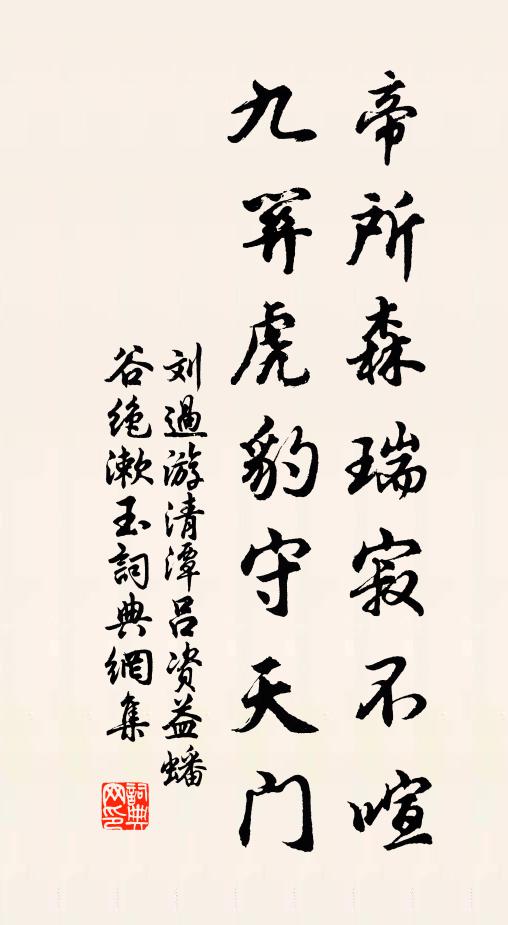 帝所森瑞寂不喧
九关虎豹守天门
刘過游清潭吕资益蟠
谷绝漱玉詞典網集
詞典网印